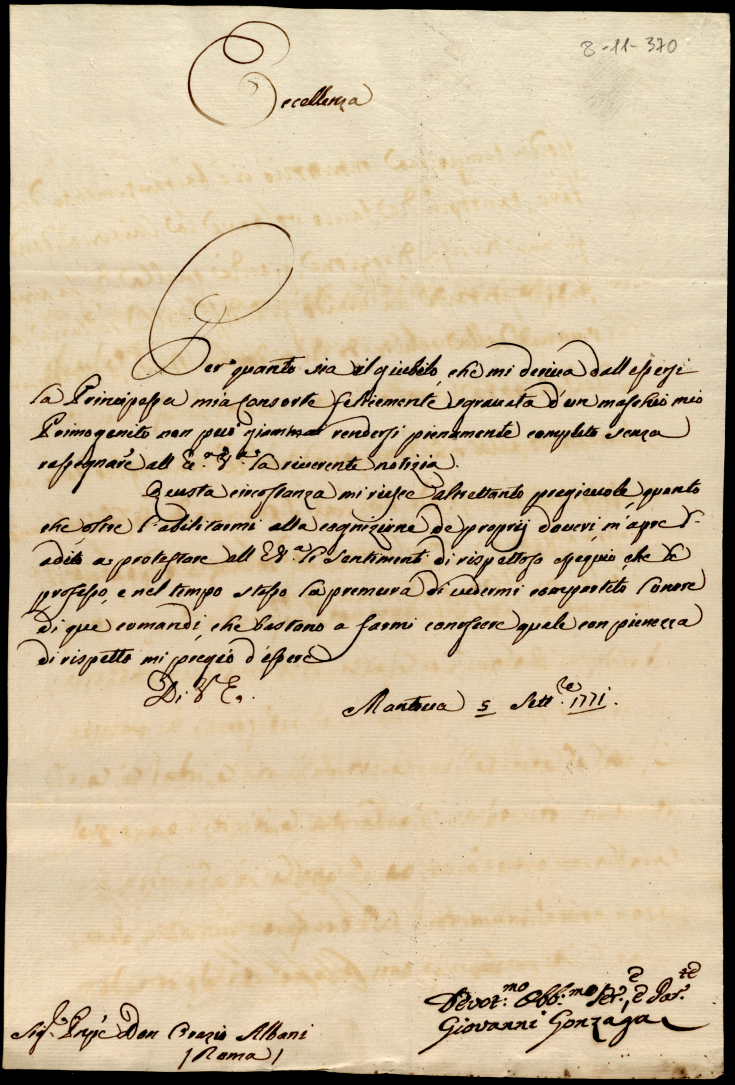 8-11-370
Eccellenza
Per quanto sia il giubilo, che mi deriva dall'essersi
la Principessa mia Consorte felicemente sgravata d'un maschio mio
Primogenito non può giammai rendersi pienamente completo senza
rassegnare all' E.ª V.ª la riverente notizia.
Questa circostanza mi riesce altrettanto pregievole, quanto
che oltre l'abilitarmi alla cognizione de proprij doveri m'apre l'
adito a protestare all' E.V.ª li sentimenti di rispettoso ossequio, che le
professo, e nel tempo stesso la premura di vedermi compartito l'onore
di que' comandi, che bastono a farmi conoscere quale con pienezza
di rispetto mi pregio d'essere
Di V. E.
Mantova 5 Sett.re 1771.
Devot.mo Obb.mo Ser.e e Par.te
Giovanni Gonzaga
Sig.r Prnpe Don Orazio Albani
/ Roma /